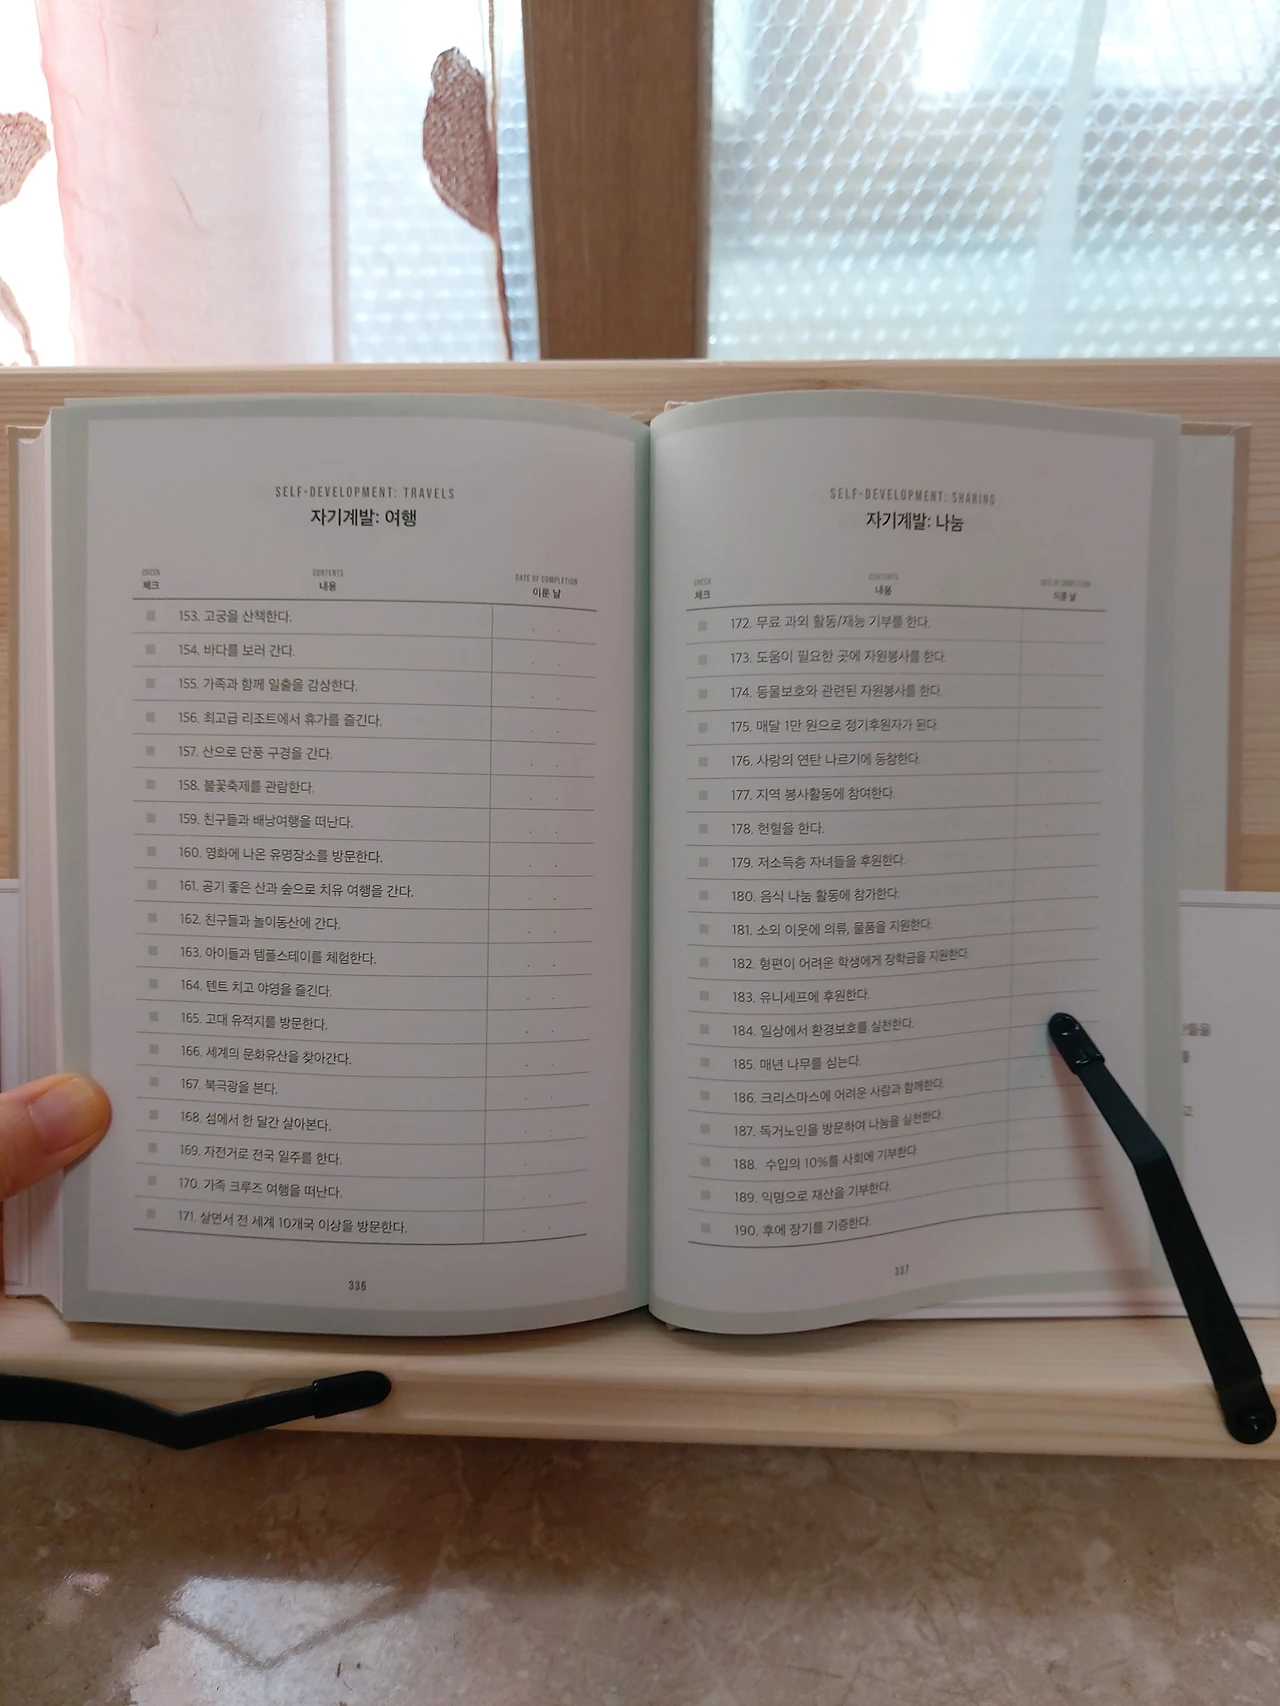 SELF-DEVELOPMENT: TRAVELS
자기계발: 여행
CHECK CONTENTS DATE OF COMPLETION
체크 내용 이룬 날
153. 고궁을 산책한다.
154. 바다를 보러 간다.
155. 가족과 함께 일출을 감상한다.
156. 최고급 리조트에서 휴가를 즐긴다.
157. 산으로 단풍 구경을 간다.
158. 불꽃축제를 관람한다.
159. 친구들과 배낭여행을 떠난다.
160. 영화에 나온 유명장소를 방문한다.
161. 공기 좋은 산과 숲으로 치유 여행을 간다.
162. 친구들과 놀이동산에 간다.
163. 아이들과 템플스테이를 체험한다.
164. 텐트 치고 야영을 즐긴다.
165. 고대 유적지를 방문한다.
166. 세계의 문화유산을 찾아간다.
167. 북극광을 본다.
168. 섬에서 한 달간 살아본다.
169. 자전거로 전국 일주를 한다.
170. 가족 크루즈 여행을 떠난다.
171. 살면서 전 세계 10개국 이상을 방문한다.
336
SELF-DEVELOPMENT: SHARING
자기계발: 나눔
CHECK CONTENTS DATE OF COMPLETION
체크 내용 이룬 날
172. 무료 과외 활동/재능 기부를 한다.
173. 도움이 필요한 곳에 자원봉사를 한다.
174. 동물보호와 관련된 자원봉사를 한다.
175. 매달 1만 원으로 정기후원자가 된다.
176. 사랑의 연탄 나르기에 동참한다.
177. 지역 봉사활동에 참여한다.
178. 헌혈을 한다.
179. 저소득층 자녀들을 후원한다.
180. 음식 나눔 활동에 참가한다.
181. 소외 이웃에 의류, 물품을 지원한다.
182. 형편이 어려운 학생에게 장학금을 지원한다.
183. 유니세프에 후원한다.
184. 일상에서 환경보호를 실천한다.
185. 매년 나무를 심는다.
186. 크리스마스에 어려운 사람과 함께한다.
187. 독거노인을 방문하여 나눔을 실천한다.
188. 수입의 10%를 사회에 기부한다.
189. 익명으로 재산을 기부한다.
190. 후에 장기를 기증한다.
337